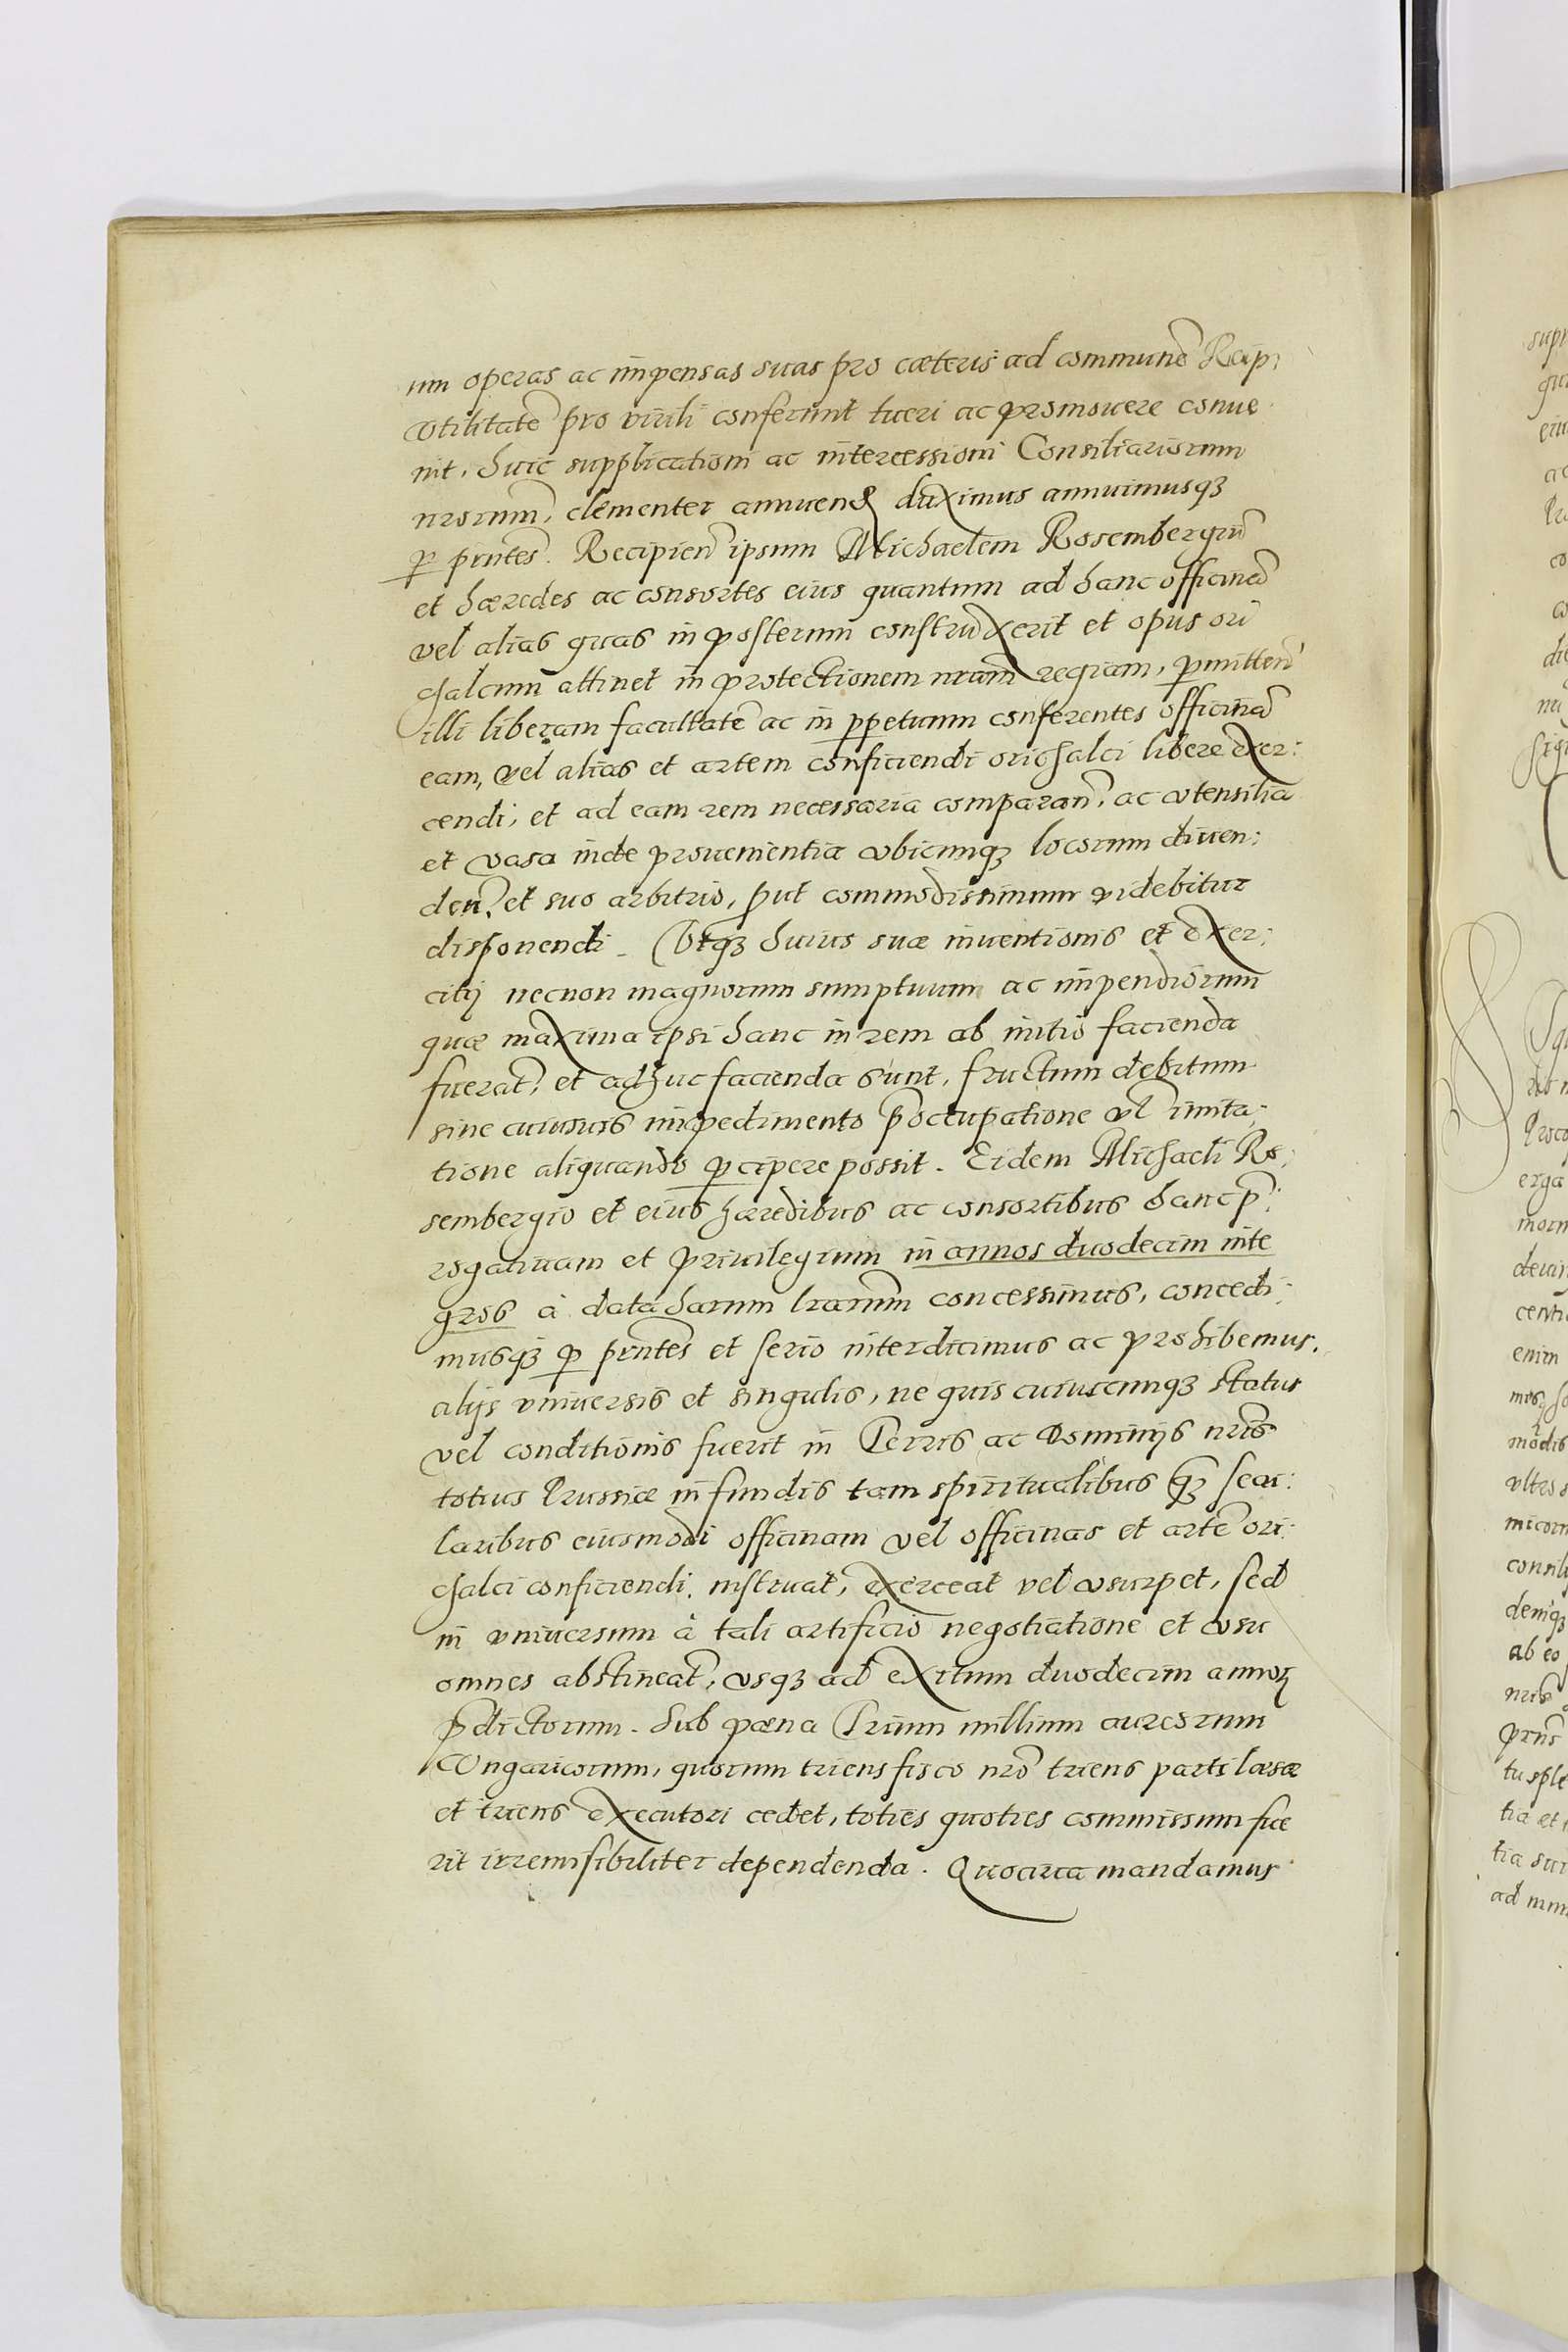 um operas ac impensas suas pro cæteris ad communẽ Reip:
vtilitatẽ pro virili conferunt tueri ac promouere conue
nit, huic supplicationi ac intercessioni Consiliariorum
nrorum̃, clementer annuend duximus annuimusqȝ
ꝑ pñtes. Recipieñ ipsum Michaelem Rosembergiũ
et hæredes ac consortes eius quantum ad hanc officinã
vel alias quas in posterum construxerit et opus ori
chalcum attinet in protectionem nram̃ regiam, ꝑmitteñ
illi liberam facultatẽ ac in ꝑpetuum conferentes officinã
eam, vel alias et artem conficiendi orichalci libere exer:
cendi, et ad eam rem necessaria comparañ, ac vtensilia
et vasa inde prouenientia vbicunqȝ locorum diuen:
deñ, et suo arbitrio, ꝓut commodissimum videbitur
disponendi. Vtqȝ huius suæ inuentionis et exer:
citij necnon magnorum sumptuum ac impendiorum
quæ maxima ipsi hanc in rem ab initio facienda
fuerãt, et adhuc facienda sunt, fructum debitum
sine cuiusuis impedimento p̃occupatione vl̃ imita:
tione aliquando ꝑcipere possit. Eidem Michaeli Ro:
sembergio et eius hæredibus ac consortibus hanc p̃:
rogatiuam et Priuilegium in annos duodecim inte
gros à data harum lrarum̃ concessimus, concedi:
musqȝ ꝑ pñtes et serio interdicimus ac prohibemus,
alijs vniuersis et singulis, ne quis cuiuscunqȝ status
vel conditionis fuerit in Terris ac Dominijs nris̃
totius Prussiæ in fundis tam spiritualibus qȝ secu:
laribus eiusmodi officinam vel officinas et artẽ ori:
chalci conficiendi, instruat, exerceat vel vsurpet, sed
in vniuersum à tali artificio negotiatione et vsu
omnes abstineãt, vsqȝ ad exitum duodecim annoꝝ
p̃dictorum. Sub pœna Trium millium aureorum
Vngaricorum, quorum triens fisco nrõ triens parti læsæ
et triens executori cedet, toties quoties commissum fue
rit irremisibiliter dependenda. Quocirca mandamus